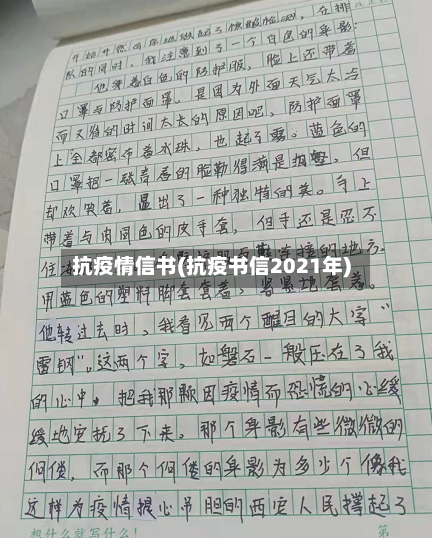 队的同时，我注意到了一个白色的身影：
他穿着白色的防护服，脸上还带着
口罩与防护面罩。是因为外面天气太冷
而又等的时间太长的原因吧，防护面罩
上全都密布着水珠，也起了雾。蓝色的
口罩把一张青春的脸勒得满是褶皱，但
却欢笑着，显出了一种独特的美。手上
带着与肉同色的皮手套，但手还是忍不
住
抗疫情信书(抗疫书信2021年)
用蓝色的塑料脚套套着，紧紧地套着。
他转过去时，我看见两个醒目的大字"
雷钢"。这两个字，如磐石一般压在了我
的心中，把我那颗因疫情而恐慌的心缓
缓地安抚了下来。那个身影有些微微的
佝偻，而那个佝偻的身影为多少个像我
这样为疫情提心吊胆的西安人民撑起了
想什么就写什么！
第